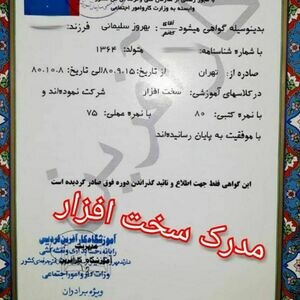 با مجوز رسمی از سازمان آموزش فنی و حرفه ای
وابسته به وزارت کاروامور اجتماعی
بدینوسیله گواهی میشود آقای بهروز سلیمانی فرزند:
با شماره شناسنامه: متولد: ۱۳۶۴
صادره از: تهران از تاریخ: ۸۰.۹.۱۵ الی تاریخ: ۸۰.۱۰.۸
در کلاسهای آموزشی: سخت افزار شرکت نموده اند و
با نمره کتبی: ۸۰ با نمره عملی: ۷۵
با موفقیت به پایان رسانیده اند
این گواهی فقط جهت اطلاع و تائید گذراندن دوره فوق صادر گردیده است
مدرک سخت افزار
آموزشگاه کارآفرین فردیس
مدیریت
وزارت کار وامور اجتماعی
ویژه برادران